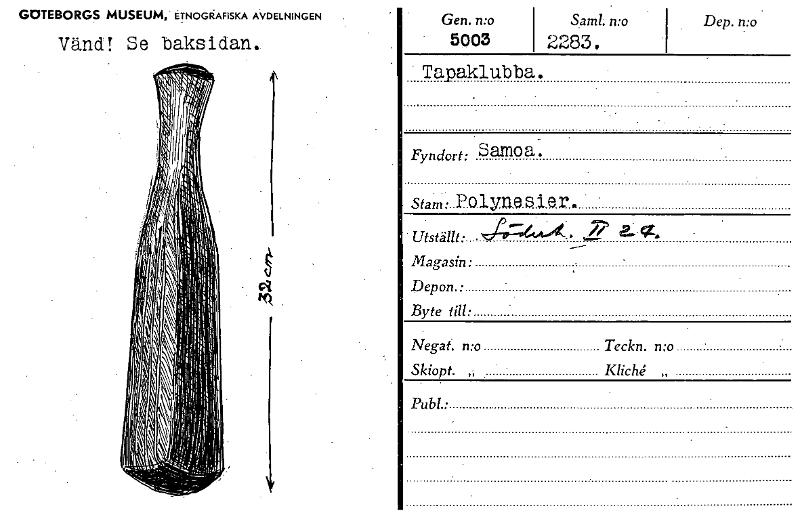 GÖTEBORGS MUSEUM, ETNOGRAFISKA AVDELNINGEN
Vänd! Se baksidan.
32 cm
Gen. n:o Saml. n:o Dep. n:o
5003 2283.
Tapaklubba.
Fyndort: Samoa.
Stam: Polynesier.
Utställt: Söderh. II 24.
Magasin:
Depon.:
Byte till:
Negat. n:o Teckn. n:o
Skiopt. „ Kliché „
Publ.: